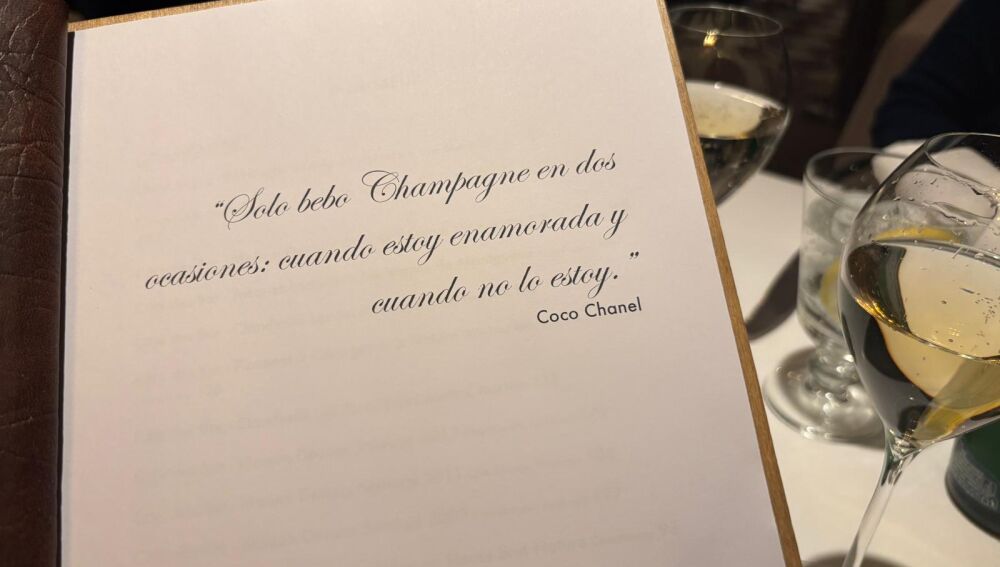 “Solo bebo Champagne en dos
ocasiones: cuando estoy enamorada y
cuando no lo estoy.”
Coco Chanel